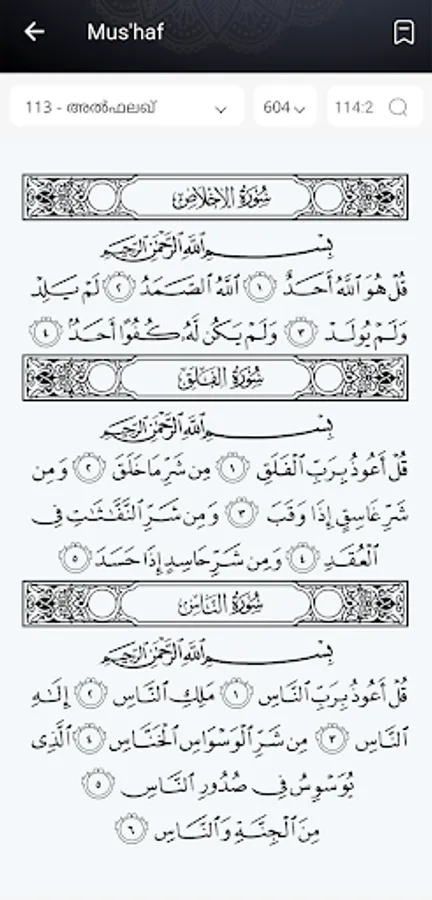 Mus'haf
113 - അൽഫലഖ്
604
114:2
سُورَةُ الإِخْلَاصِ
بِسْمِ اللَّهِ الرَّحْمَٰنِ الرَّحِيمِ
قُلْ هُوَ ٱللَّهُ أَحَدٌ ١ ٱللَّهُ ٱلصَّمَدُ ٢ لَمْ يَلِدْ
وَلَمْ يُولَدْ ٣ وَلَمْ يَكُن لَّهُۥ كُفُوًا أَحَدٌۢ ٤
سُورَةُ الْفَلَقِ
بِسْمِ اللَّهِ الرَّحْمَٰنِ الرَّحِيمِ
قُلْ أَعُوذُ بِرَبِّ ٱلْفَلَقِ ١ مِن شَرِّ مَا خَلَقَ ٢ وَمِن
شَرِّ غَاسِقٍ إِذَا وَقَبَ ٣ وَمِن شَرِّ ٱلنَّفَّٰثَٰتِ فِى
ٱلْعُقَدِ ٤ وَمِن شَرِّ حَاسِدٍ إِذَا حَسَدَ ٥
سُورَةُ النَّاسِ
بِسْمِ اللَّهِ الرَّحْمَٰنِ الرَّحِيمِ
قُلْ أَعُوذُ بِرَبِّ ٱلنَّاسِ ١ مَلِكِ ٱلنَّاسِ ٢ إِلَٰهِ
ٱلنَّاسِ ٣ مِن شَرِّ ٱلْوَسْوَاسِ ٱلْخَنَّاسِ ٤ ٱلَّذِى
يُوَسْوِسُ فِى صُدُورِ ٱلنَّاسِ ٥
مِنَ ٱلْجِنَّةِ وَٱلنَّاسِ ٦